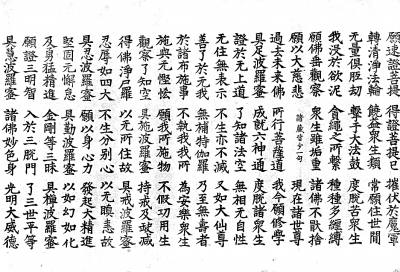 願速證菩提 得證菩提已 摧伏於魔軍
轉清淨法輪 饒益衆生類 常願住世間
无量俱胝劫 擊于大法鼓 度脫苦衆生
我沒於欲泥 貪繩之所繫 種種多纏縛
願佛垂觀察 衆生雖垢重 諸佛不猒捨
願以大慈悲 諸藏皆少一句 現在諸世尊
過去未來佛 所行菩薩道 我今願修學
具足波羅蜜 成就六神通 度脫諸衆生
證於无上道 了知諸法空 無相无自性
无住無表示 不生亦不滅 又如大仙尊
善了於无我 無補特伽羅 乃至無壽者
於諸布施事 不執我我所 為安樂衆生
施與无慳悋 願我所施物 不假功用生
觀察了知空 具施波羅蜜 持戒及缺減
得佛淨尸羅 以无所住故 具戒波羅蜜
忍辱如四大 不生分別心 以无瞋恚故
具忍波羅蜜 願以身心力 發起大精進
堅固无懈怠 具勤波羅蜜 以如幻如化
及勇猛精進 金剛等三昧 具禪波羅蜜
願證三明智 入於三脫門 了三世平等
具慧波羅蜜 諸佛妙色身 光明大威德